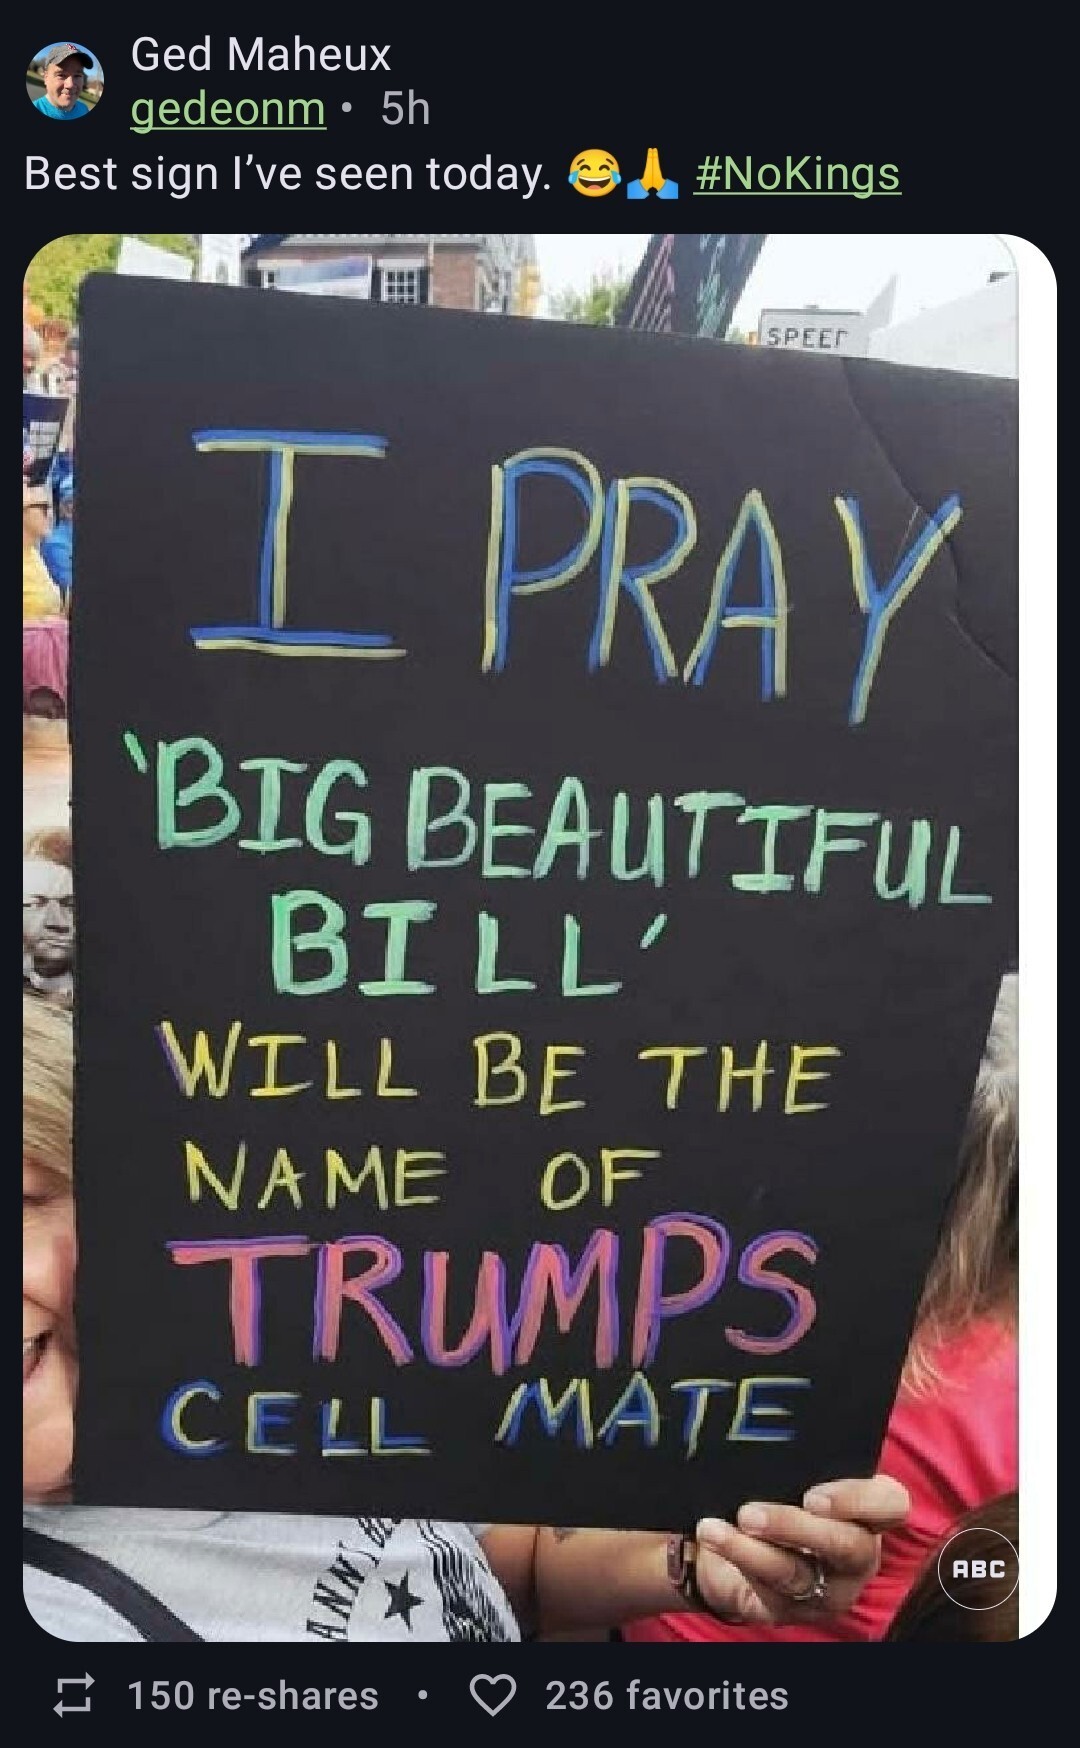 Ged Maheux
gedeonm • 5h
Best sign I’ve seen today. 😂🙏 #NoKings
SPEED
I PRAY
'BIG BEAUTIFUL
BILL'
WILL BE THE
NAME OF
TRUMPS
CELL MATE
ABC
150 re-shares • 236 favorites